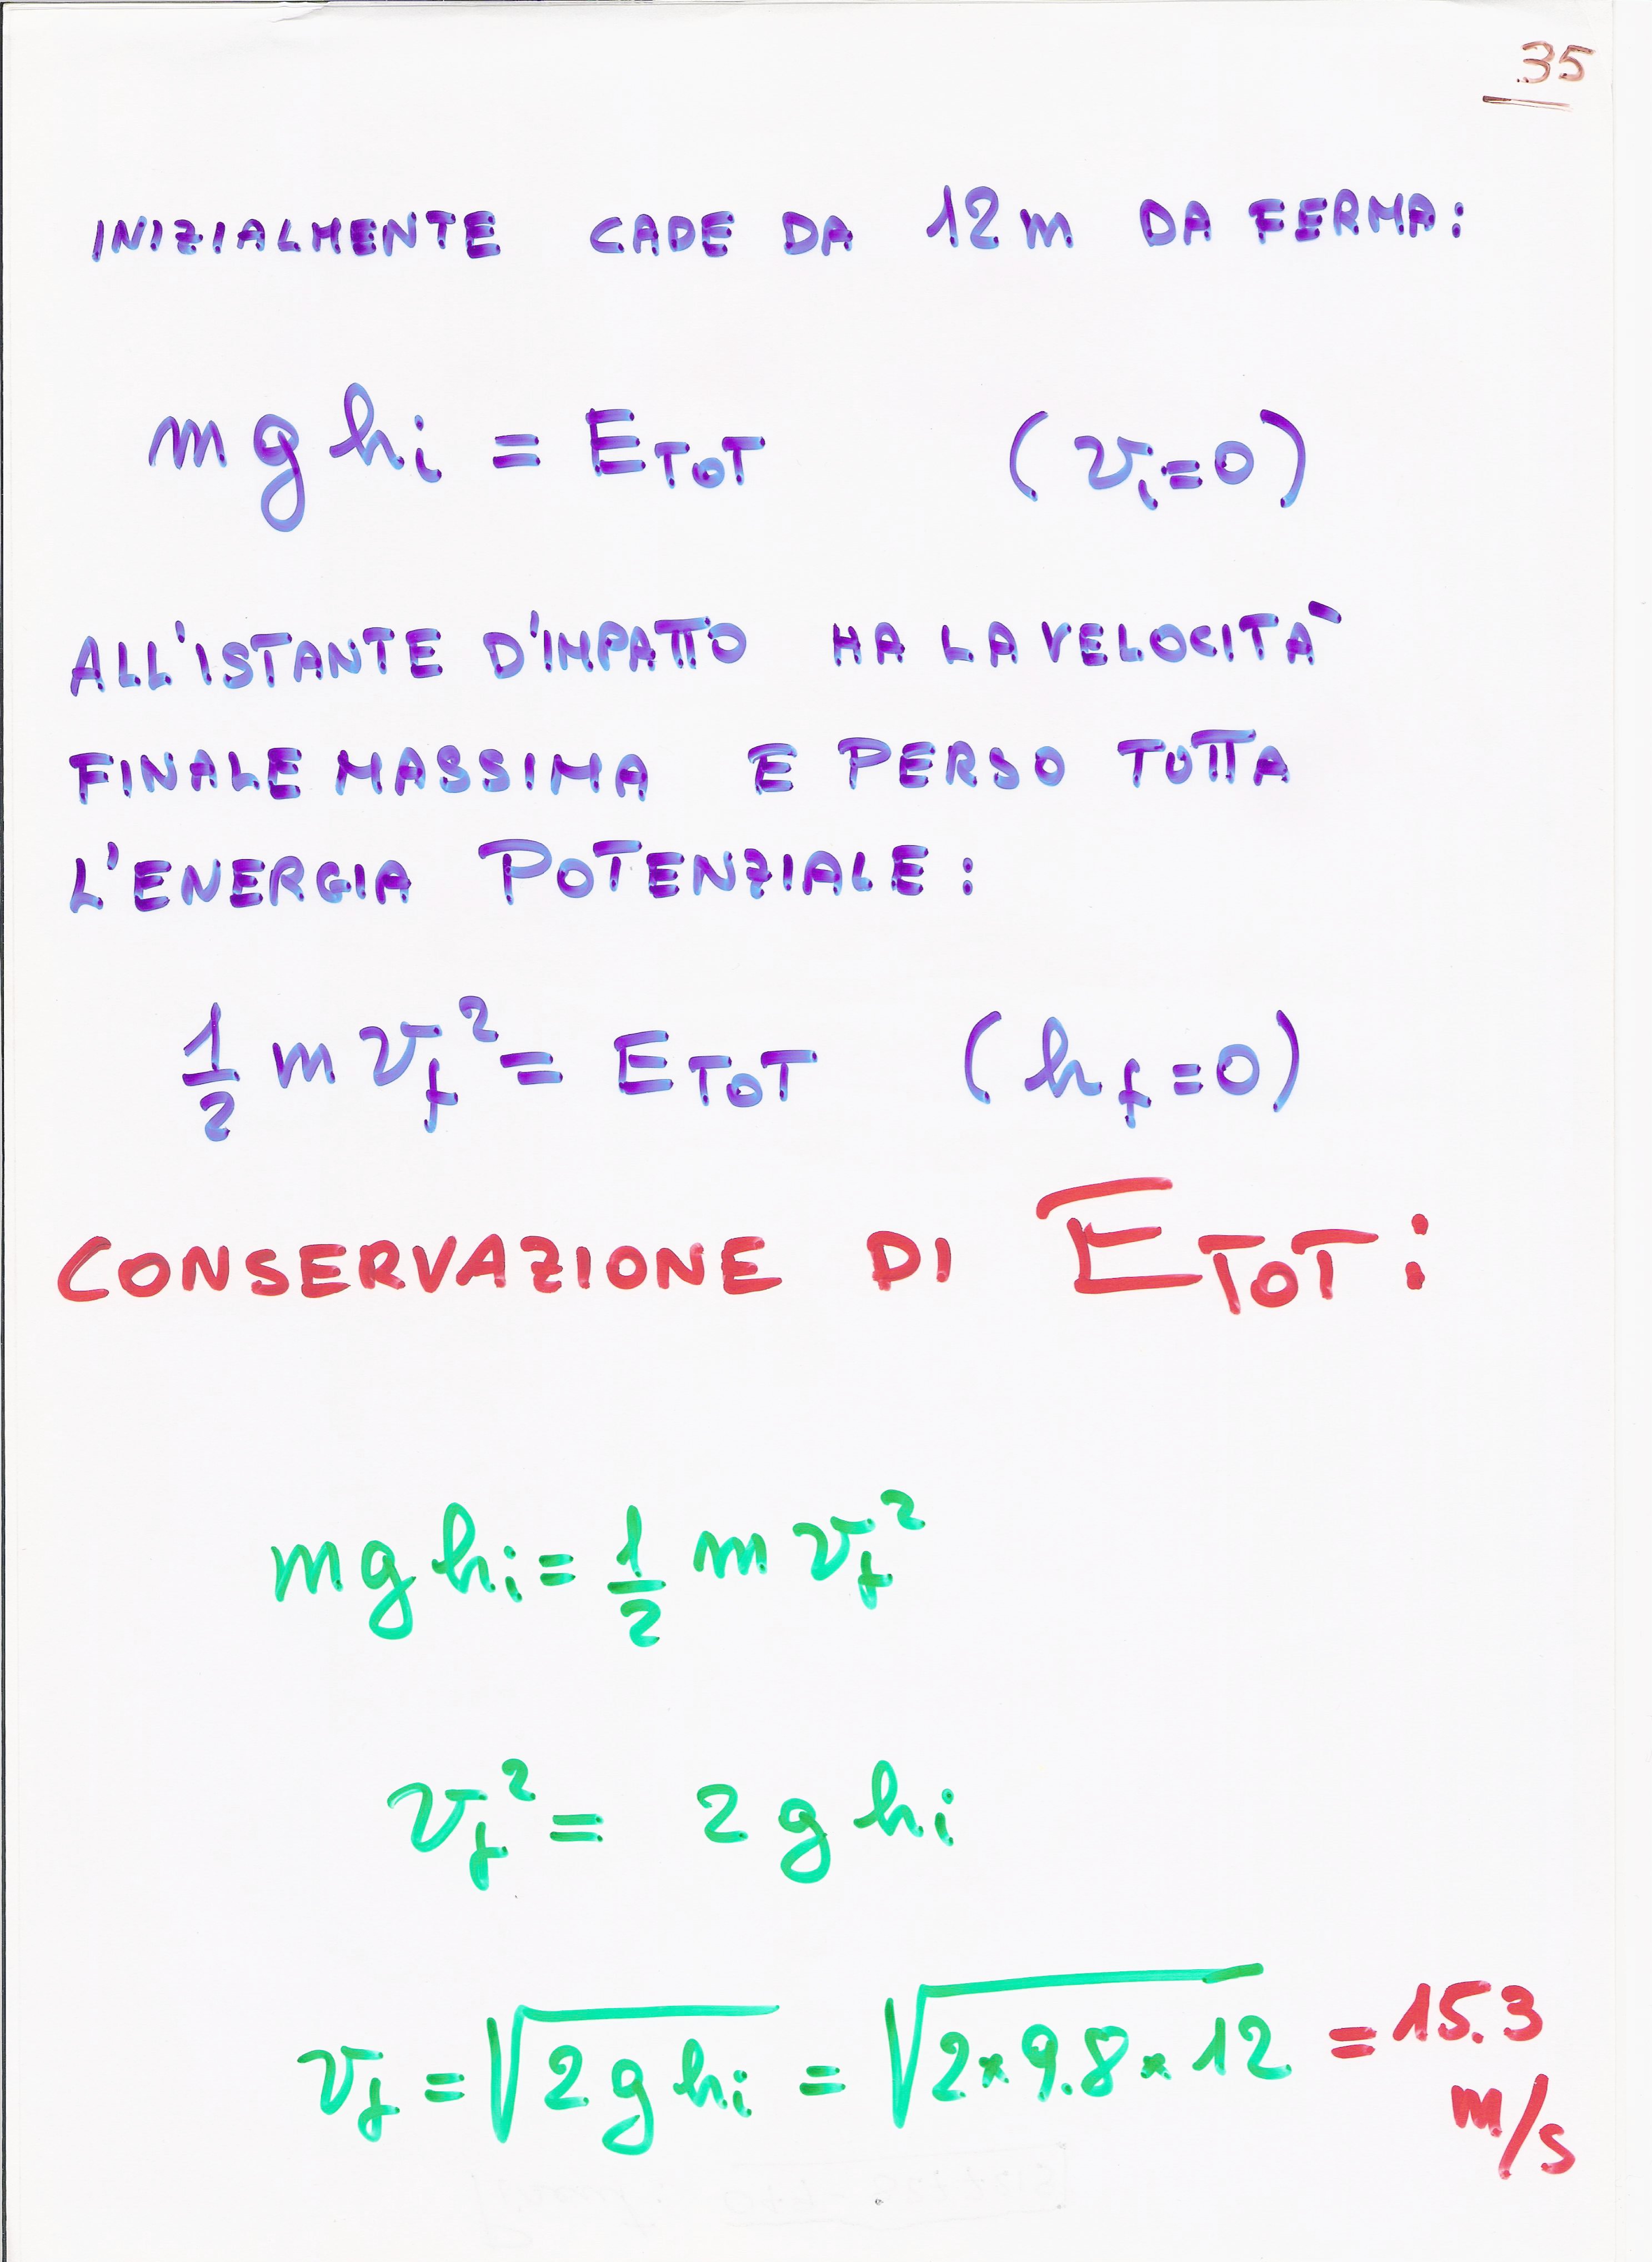 35
INIZIALMENTE CADE DA 12 m DA FERMA:
m g hi = ETOT (vi=0)
ALL'ISTANTE D'IMPATTO HA LA VELOCITÀ
FINALE MASSIMA E PERSO TUTTA
L'ENERGIA POTENZIALE:
1/2 m vf² = ETOT (hf=0)
CONSERVAZIONE DI ETOT:
m g hi = 1/2 m vf²
vf² = 2 g hi
vf = √2 g hi = √2 × 9.8 × 12 = 15.3
m/s